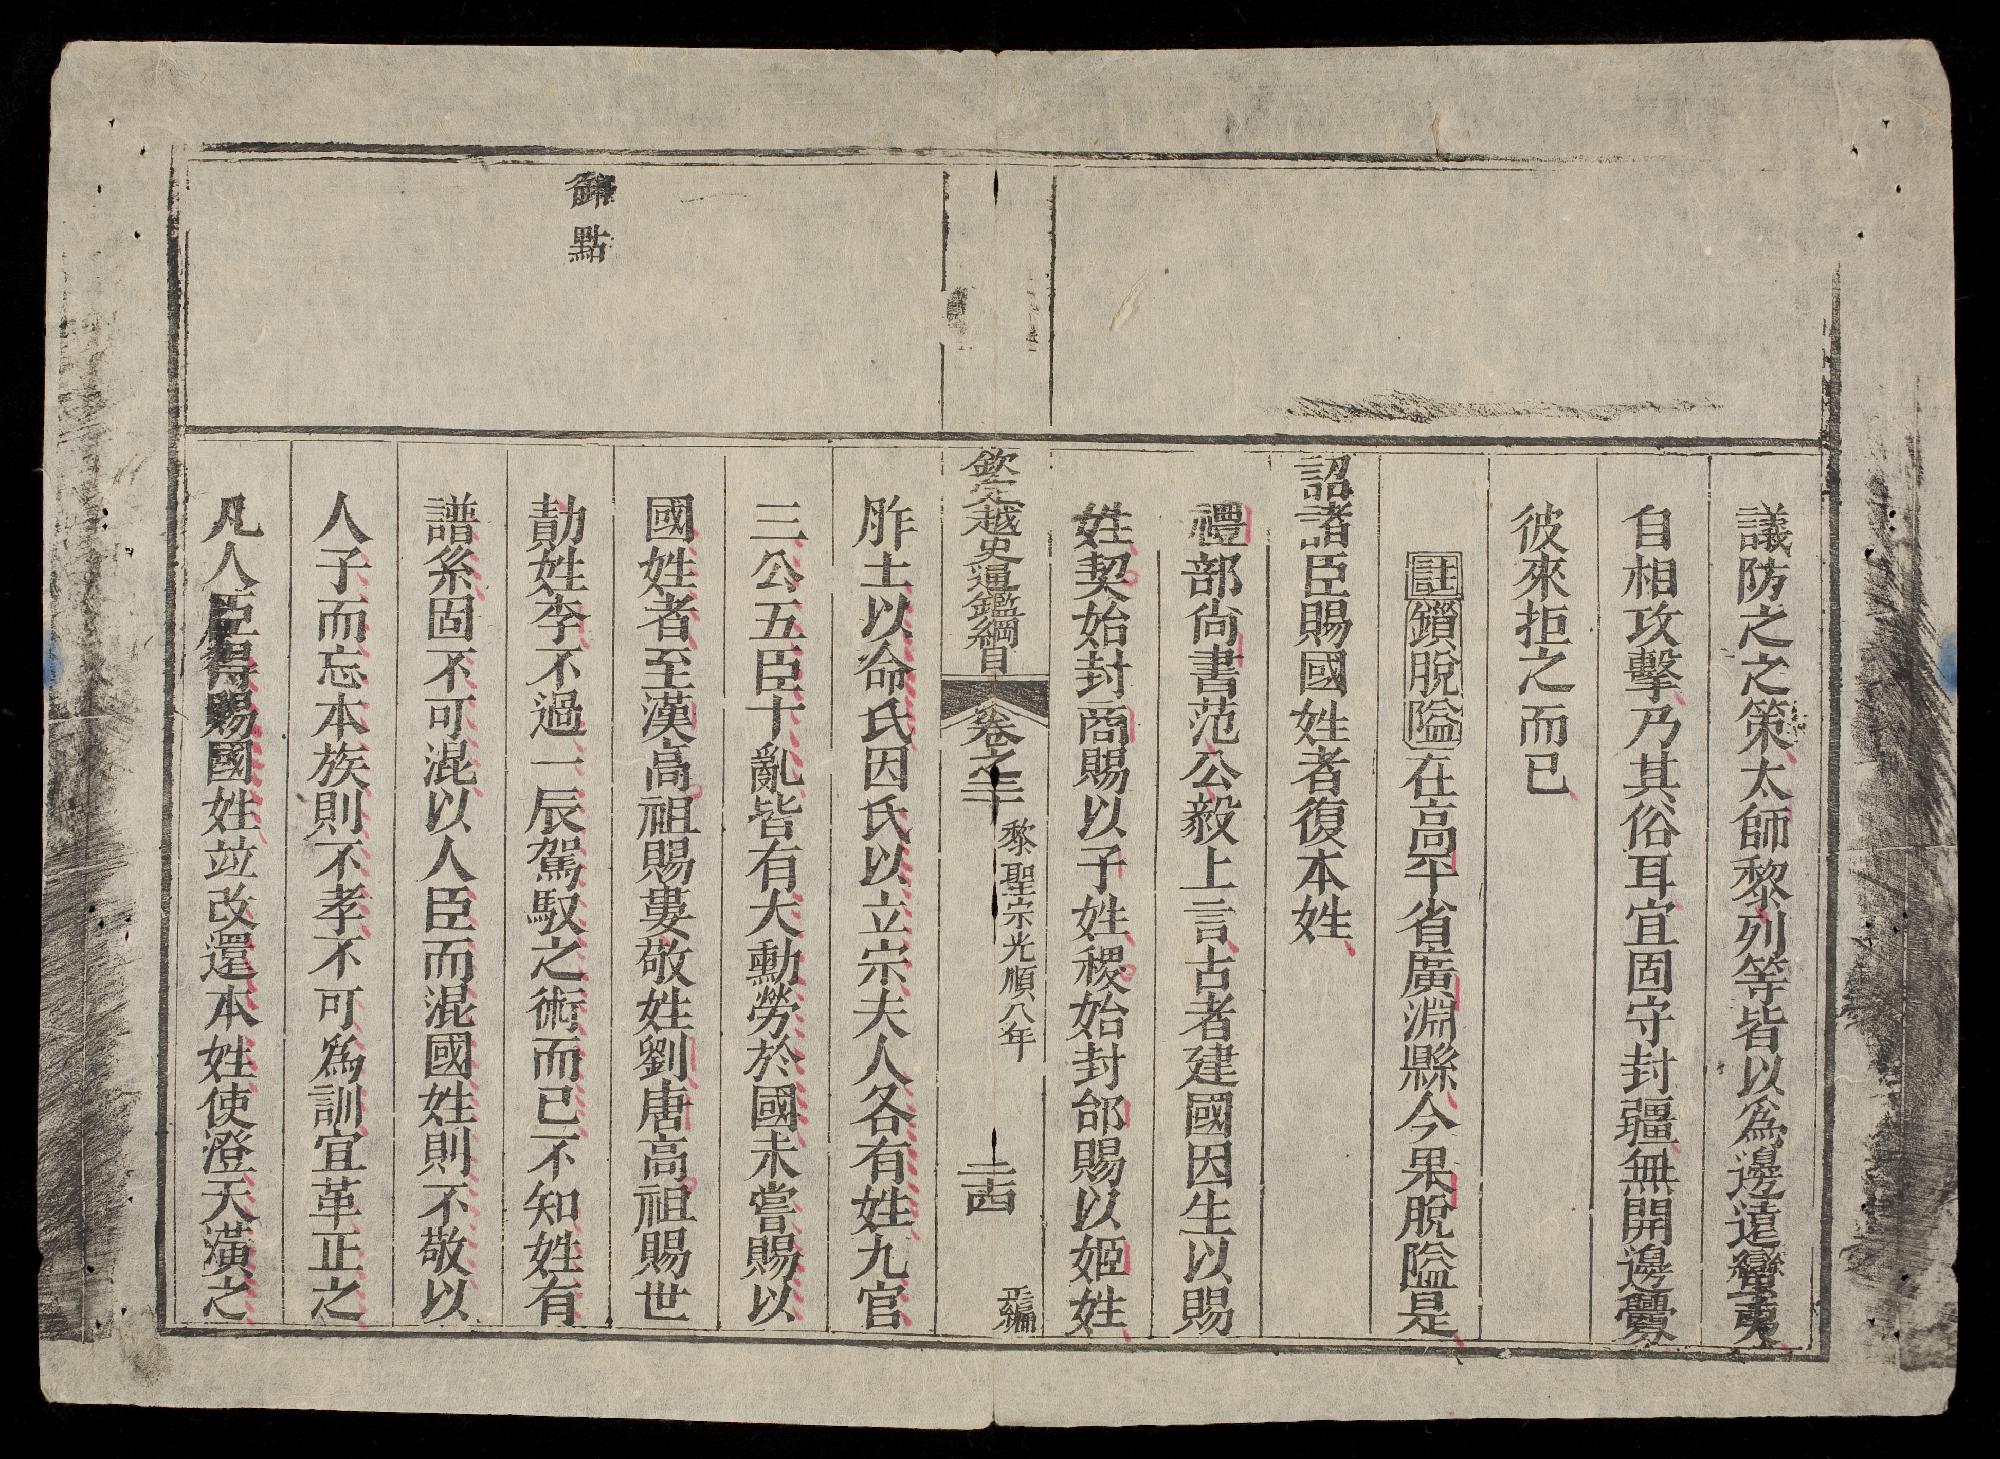 議防之之策太師黎列等皆以爲邊遠蠻夷
自相攻擊乃其俗耳宜固守封疆無開邊釁
彼來拒之而已
註鎻脫隘在高平省廣淵縣今果脫隘是
詔諸臣賜國姓者復本姓
禮部尚書范公毅上言古者建國因生以賜
姓契始封商賜以子姓稷始封邰賜以姬姓
欽定越史通鑑綱目
卷之二十
黎聖宗光順八年
二十四
正編
御點
胙土以命氏因氏以立宗夫人各有姓九官
三公五臣十亂皆有大勳勞於國未嘗賜以
國姓者至漢高祖賜婁敬姓劉唐高祖賜世
勣姓李不過一辰駕馭之術而已不知姓有
譜系固不可混以人臣而混國姓則不敬以
人子而忘本族則不孝不可爲訓宜革正之
凡人臣得賜國姓竝改還本姓使澄天潢之